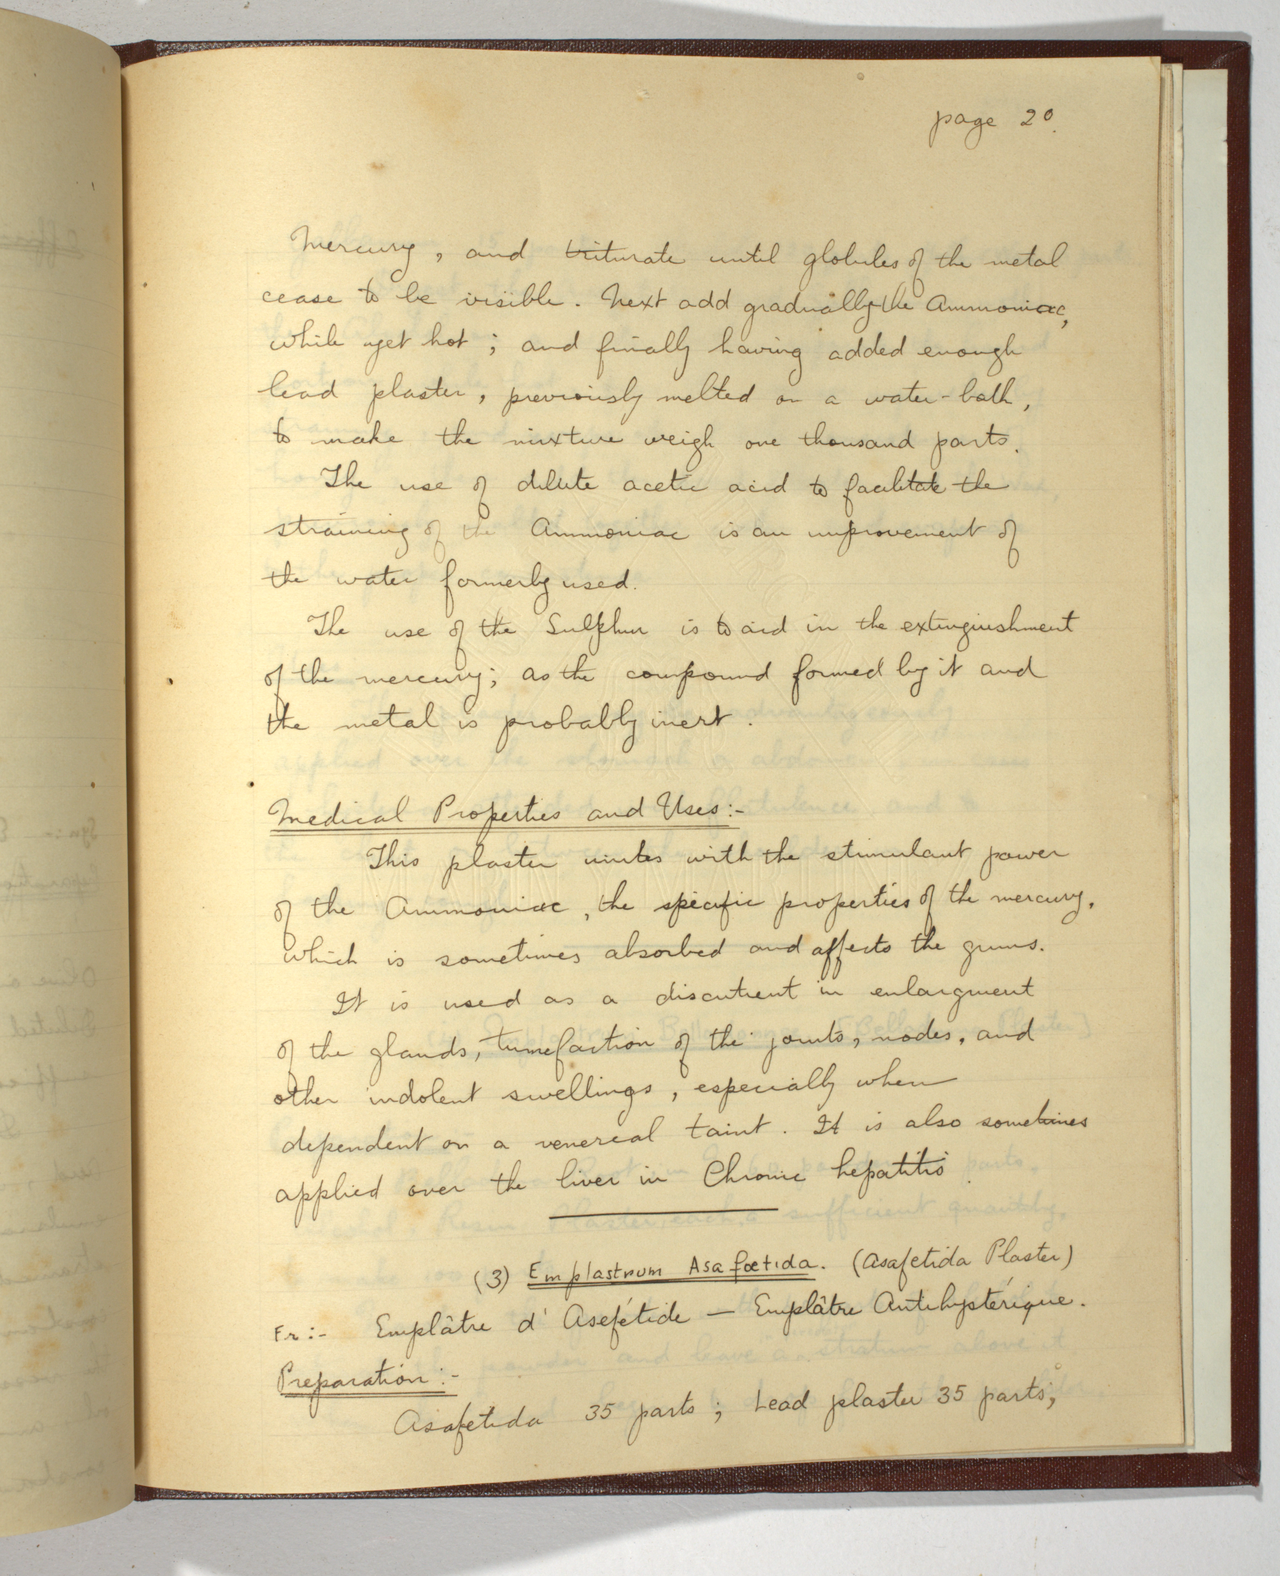 page 20.
Mercury, and triturate until globules of the metal
cease to be visible. Next add gradually the Ammoniac,
while yet hot; and finally having added enough
lead plaster, previously melted on a water-bath,
to make the mixture weigh one thousand parts.
The use of dilute acetic acid to facilitate the
straining of the Ammoniac is an improvement of
the water formerly used.
The use of the Sulphur is to aid in the extinguishment
of the mercury; as the compound formed by it and
the metal is probably inert.
Medical Properties and Uses:-
This plaster unites with the stimulant power
of the Ammoniac, the specific properties of the mercury,
which is sometimes absorbed and affects the gums.
It is used as a discutient in enlargment
of the glands, tumefaction of the joints, nodes, and
other indolent swellings, especially when
dependent on a venereal taint. It is also sometimes
applied over the liver in Chronic hepatitis.
(3) Emplastrum Asafœtida. (Asafetida Plaster)
Fr:- Emplâtre d'Asefétide — Emplâtre Antihystérique.
Preparation:-
Asafetida 35 parts; Lead plaster 35 parts;